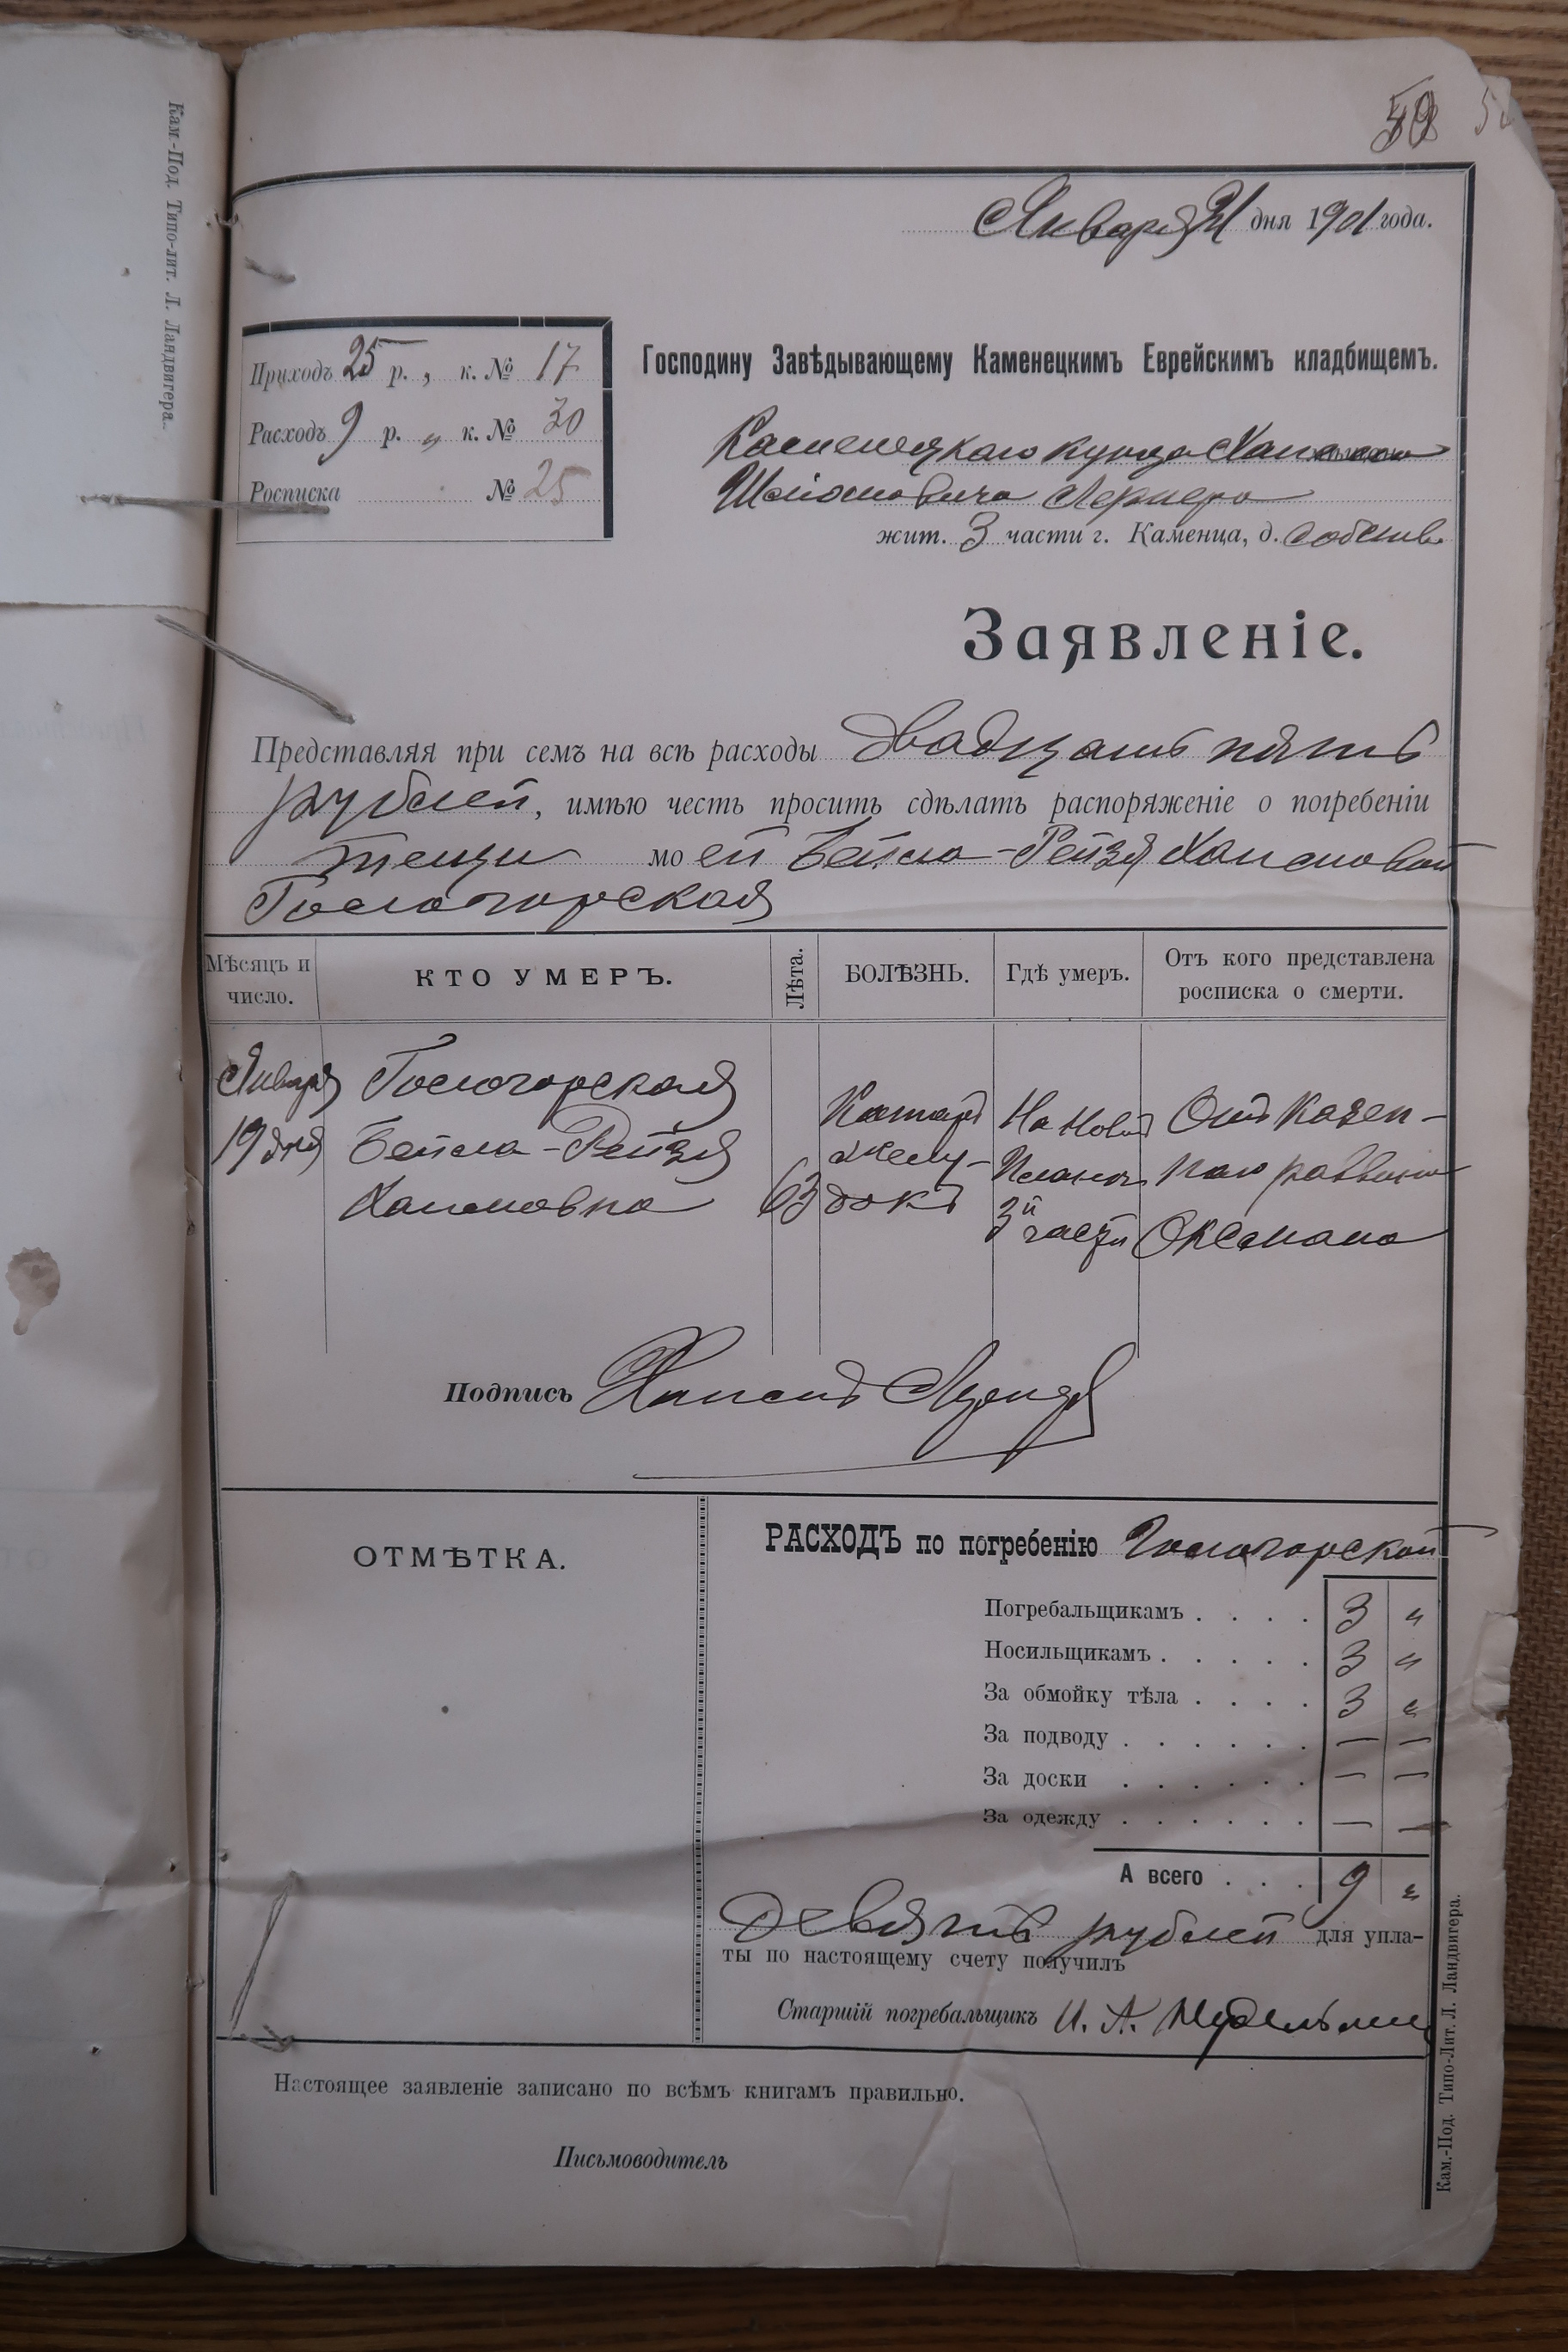 Кам.-Под. Типо-лит. Л. Ландвигера.
59
Января 21 дня 1901 года.
Приходъ 25 р. „ к. № 17
Расходъ 9 р. „ к. № 30
Росписка № 25
Господину Завѣдывающему Каменецкимъ Еврейскимъ кладбищемъ.
Каменецкаго купца
Шлiомовича Лернера
жит. 3 части г. Каменца, д. собств.
Заявленіе.
Представляя при семъ на всѣ расходы двадцать пять
рублей, имѣю честь просить сдѣлать распоряженіе о погребеніи
тещи моей Бейла-Рейзя Хаимовой
Гологорская
Мѣсяцъ и число.
КТО УМЕРЪ.
Лѣта.
БОЛѢЗНЬ.
Гдѣ умеръ.
Отъ кого представлена росписка о смерти.
Января Гологорская
19 дня Бейла-Рейзя Катаръ На Новомъ Отъ Казен-
Хаимовна 63 желу- Планѣ наго раввина
докъ 3й части Оксмана
Подпись Хаимъ
ОТМѢТКА.
РАСХОДЪ по погребенію Гологорской
Погребальщикамъ . . . . 3 „
Носильщикамъ . . . . . 3 „
За обмойку тѣла . . . . 3 „
За подводу . . . . . . — —
За доски . . . . . . — —
За одежду . . . . . . — —
А всего . . . 9 „
Девять рублей для упла-
ты по настоящему счету получилъ
Старшій погребальщикъ И. А.
Настоящее заявленіе записано по всѣмъ книгамъ правильно.
Письмоводитель
Кам.-Под. Типо-Лит. Л. Ландвигера.